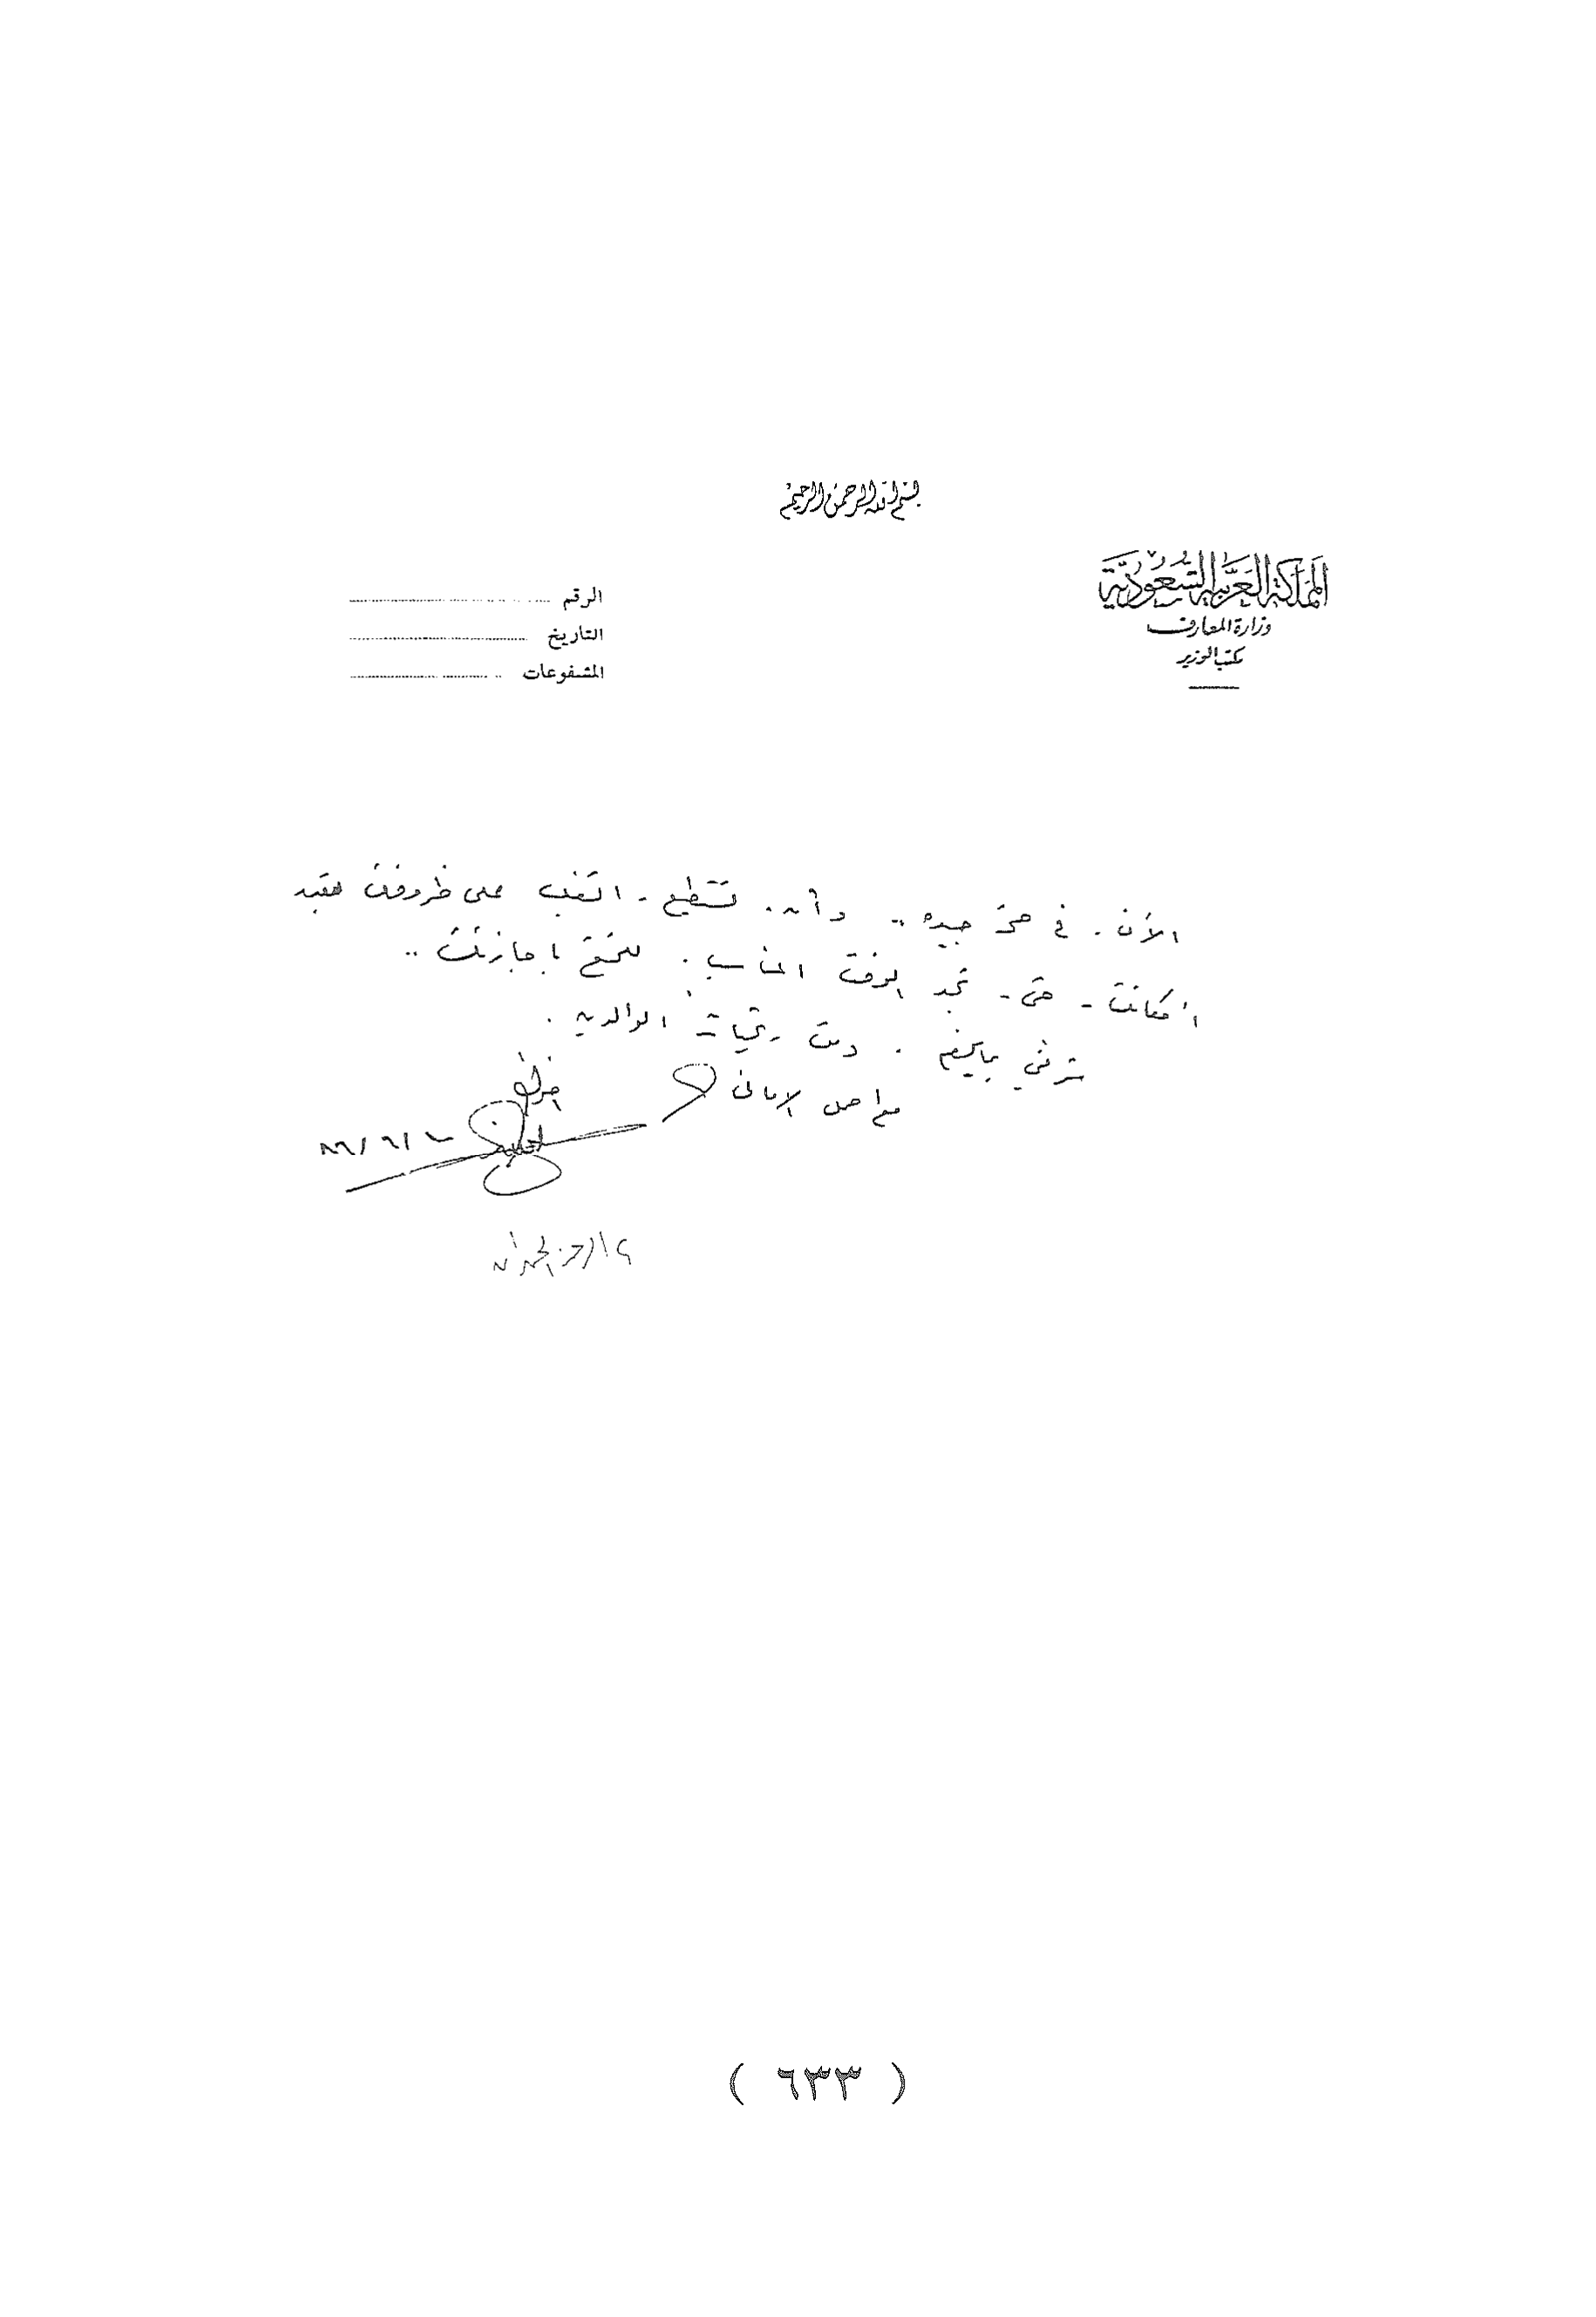 بسم الله الرحمن الرحيم
المملكة العربية السعودية
وزارة المعارف
مكتب الوزير
الرقم
التاريخ
المشفوعات
الآن . في صحة جيده .. وأن . تستطيع - التغلب على ظروف
أمكانت - حتى - تجد الوقت المناسب . للتمتع بإجازتك ..
بما يخصم . دمت وتحيات الوالدين .
مع أحمل الأماني
أخوك
٨٦/٦/
الرحمن
( ٦٣٣ )